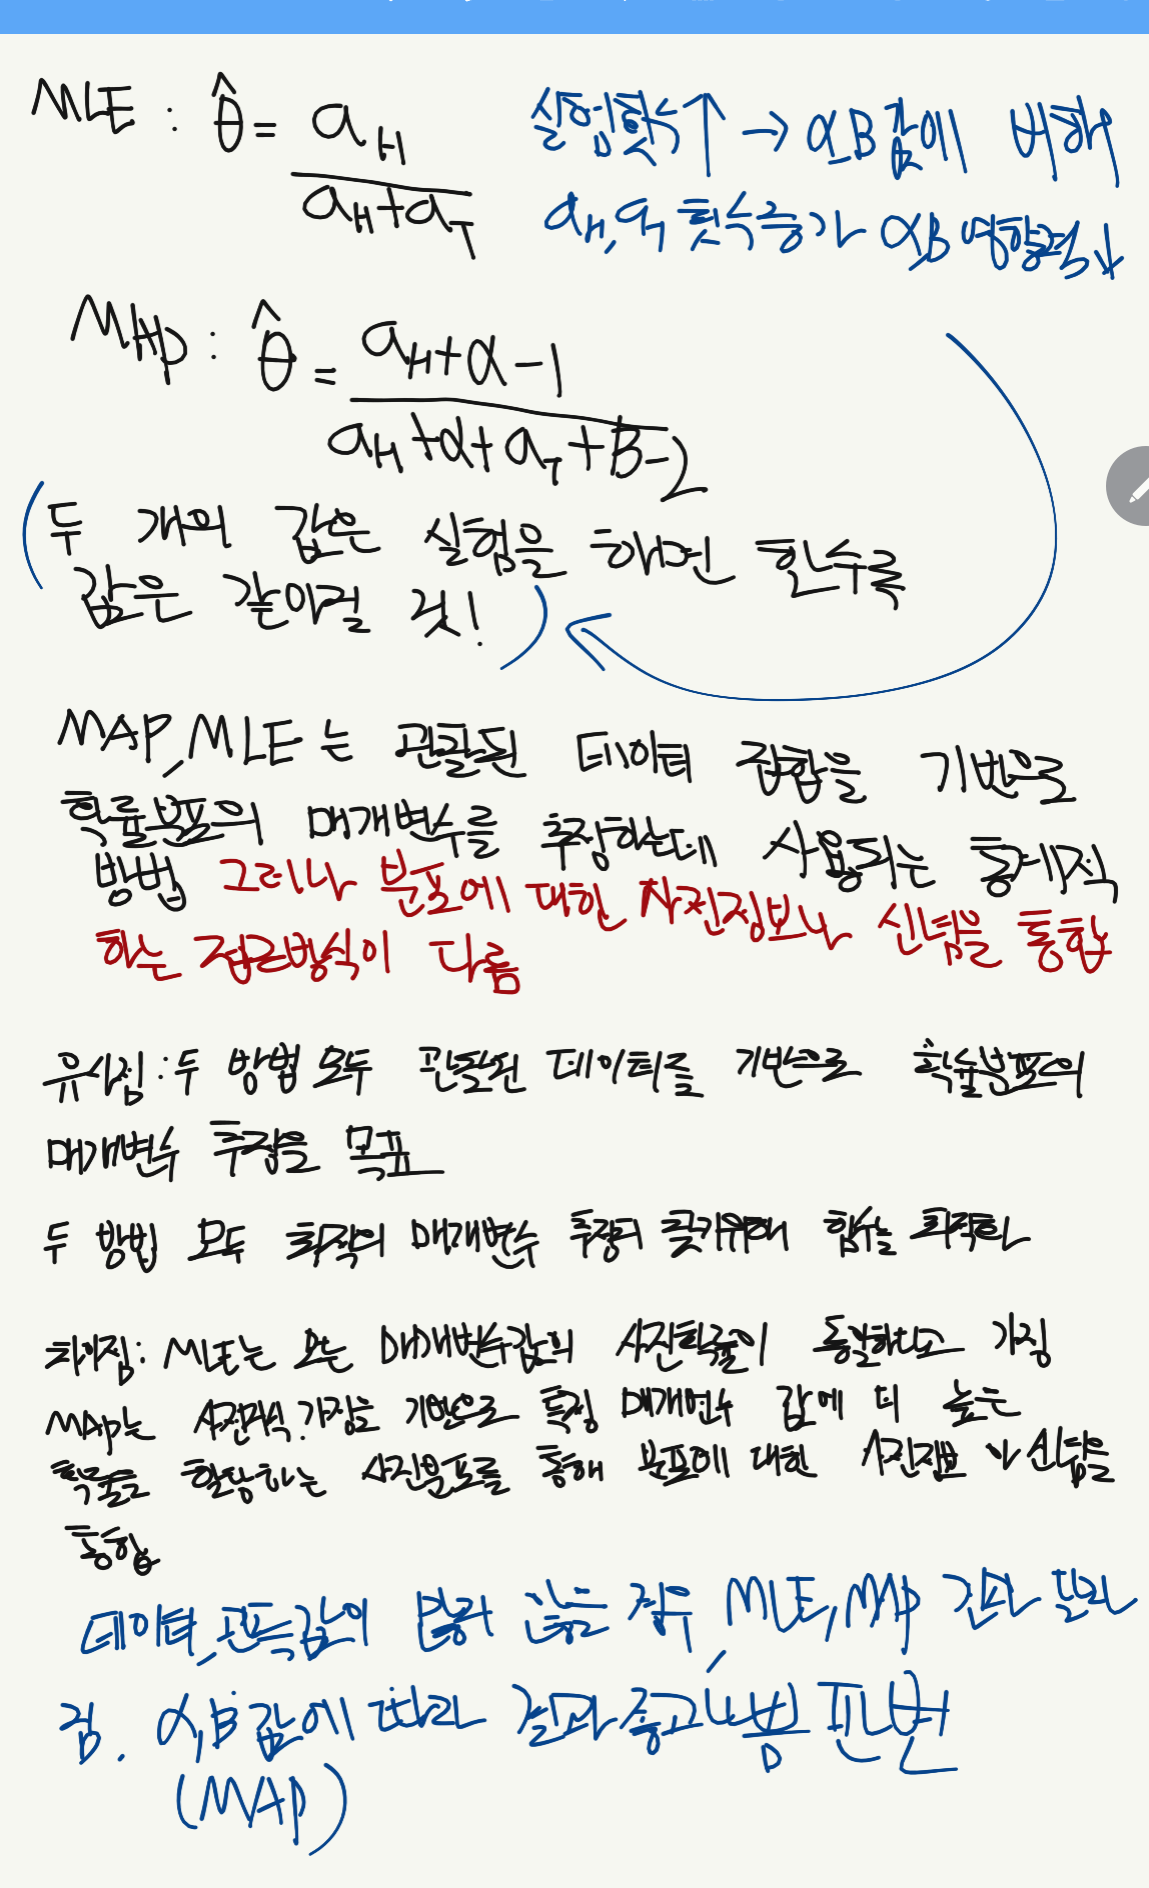 MLE : θ̂ = a_H / (a_H + a_T)
실험횟수↑ → α,B값에 비해
a_H, a_T 횟수증가 α,B 영향력↓
MAP : θ̂ = (a_H + α - 1) / (a_H + α + a_T + B - 2)
(두 개의 값은 실험을 하면 할수록
값은 같아질 것!)
MAP, MLE는 관찰된 데이터 집합을 기반으로
확률분포의 매개변수를 추정하는데 사용되는 통계적
방법 그러나 분포에 대한 사전정보나 신념을 통합
하는 접근방식이 다름
유사점 : 두 방법 모두 관찰된 데이터를 기반으로 확률분포의
매개변수 추정을 목표
두 방법 모두 최적의 매개변수 추정치 찾기위해 함수를 최적화
차이점: MLE는 모든 매개변수값의 사전확률이 동일하다고 가정
MAP는 사전지식, 가정을 기반으로 특정 매개변수 값에 더 높은
확률을 할당하는 사전분포를 통해 분포에 대한 사전정보나 신념을
통합
데이터, 관측값이 많지 않은 경우, MLE, MAP 결과 달라
짐. α, B 값에 따라 결과 좋고 나쁨 판단
(MAP)